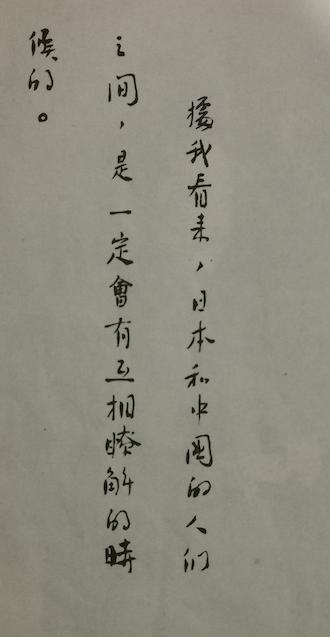 據我看来，日本和中國的人们
之间，是一定會有互相瞭解的時
候的。